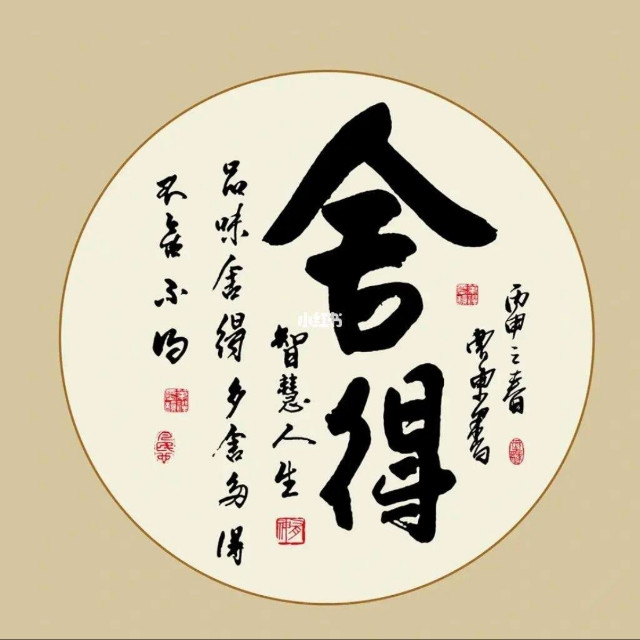 丙申之春
東書
舍得
智慧人生
品味舍得多舍多得
不舍不得
小红书